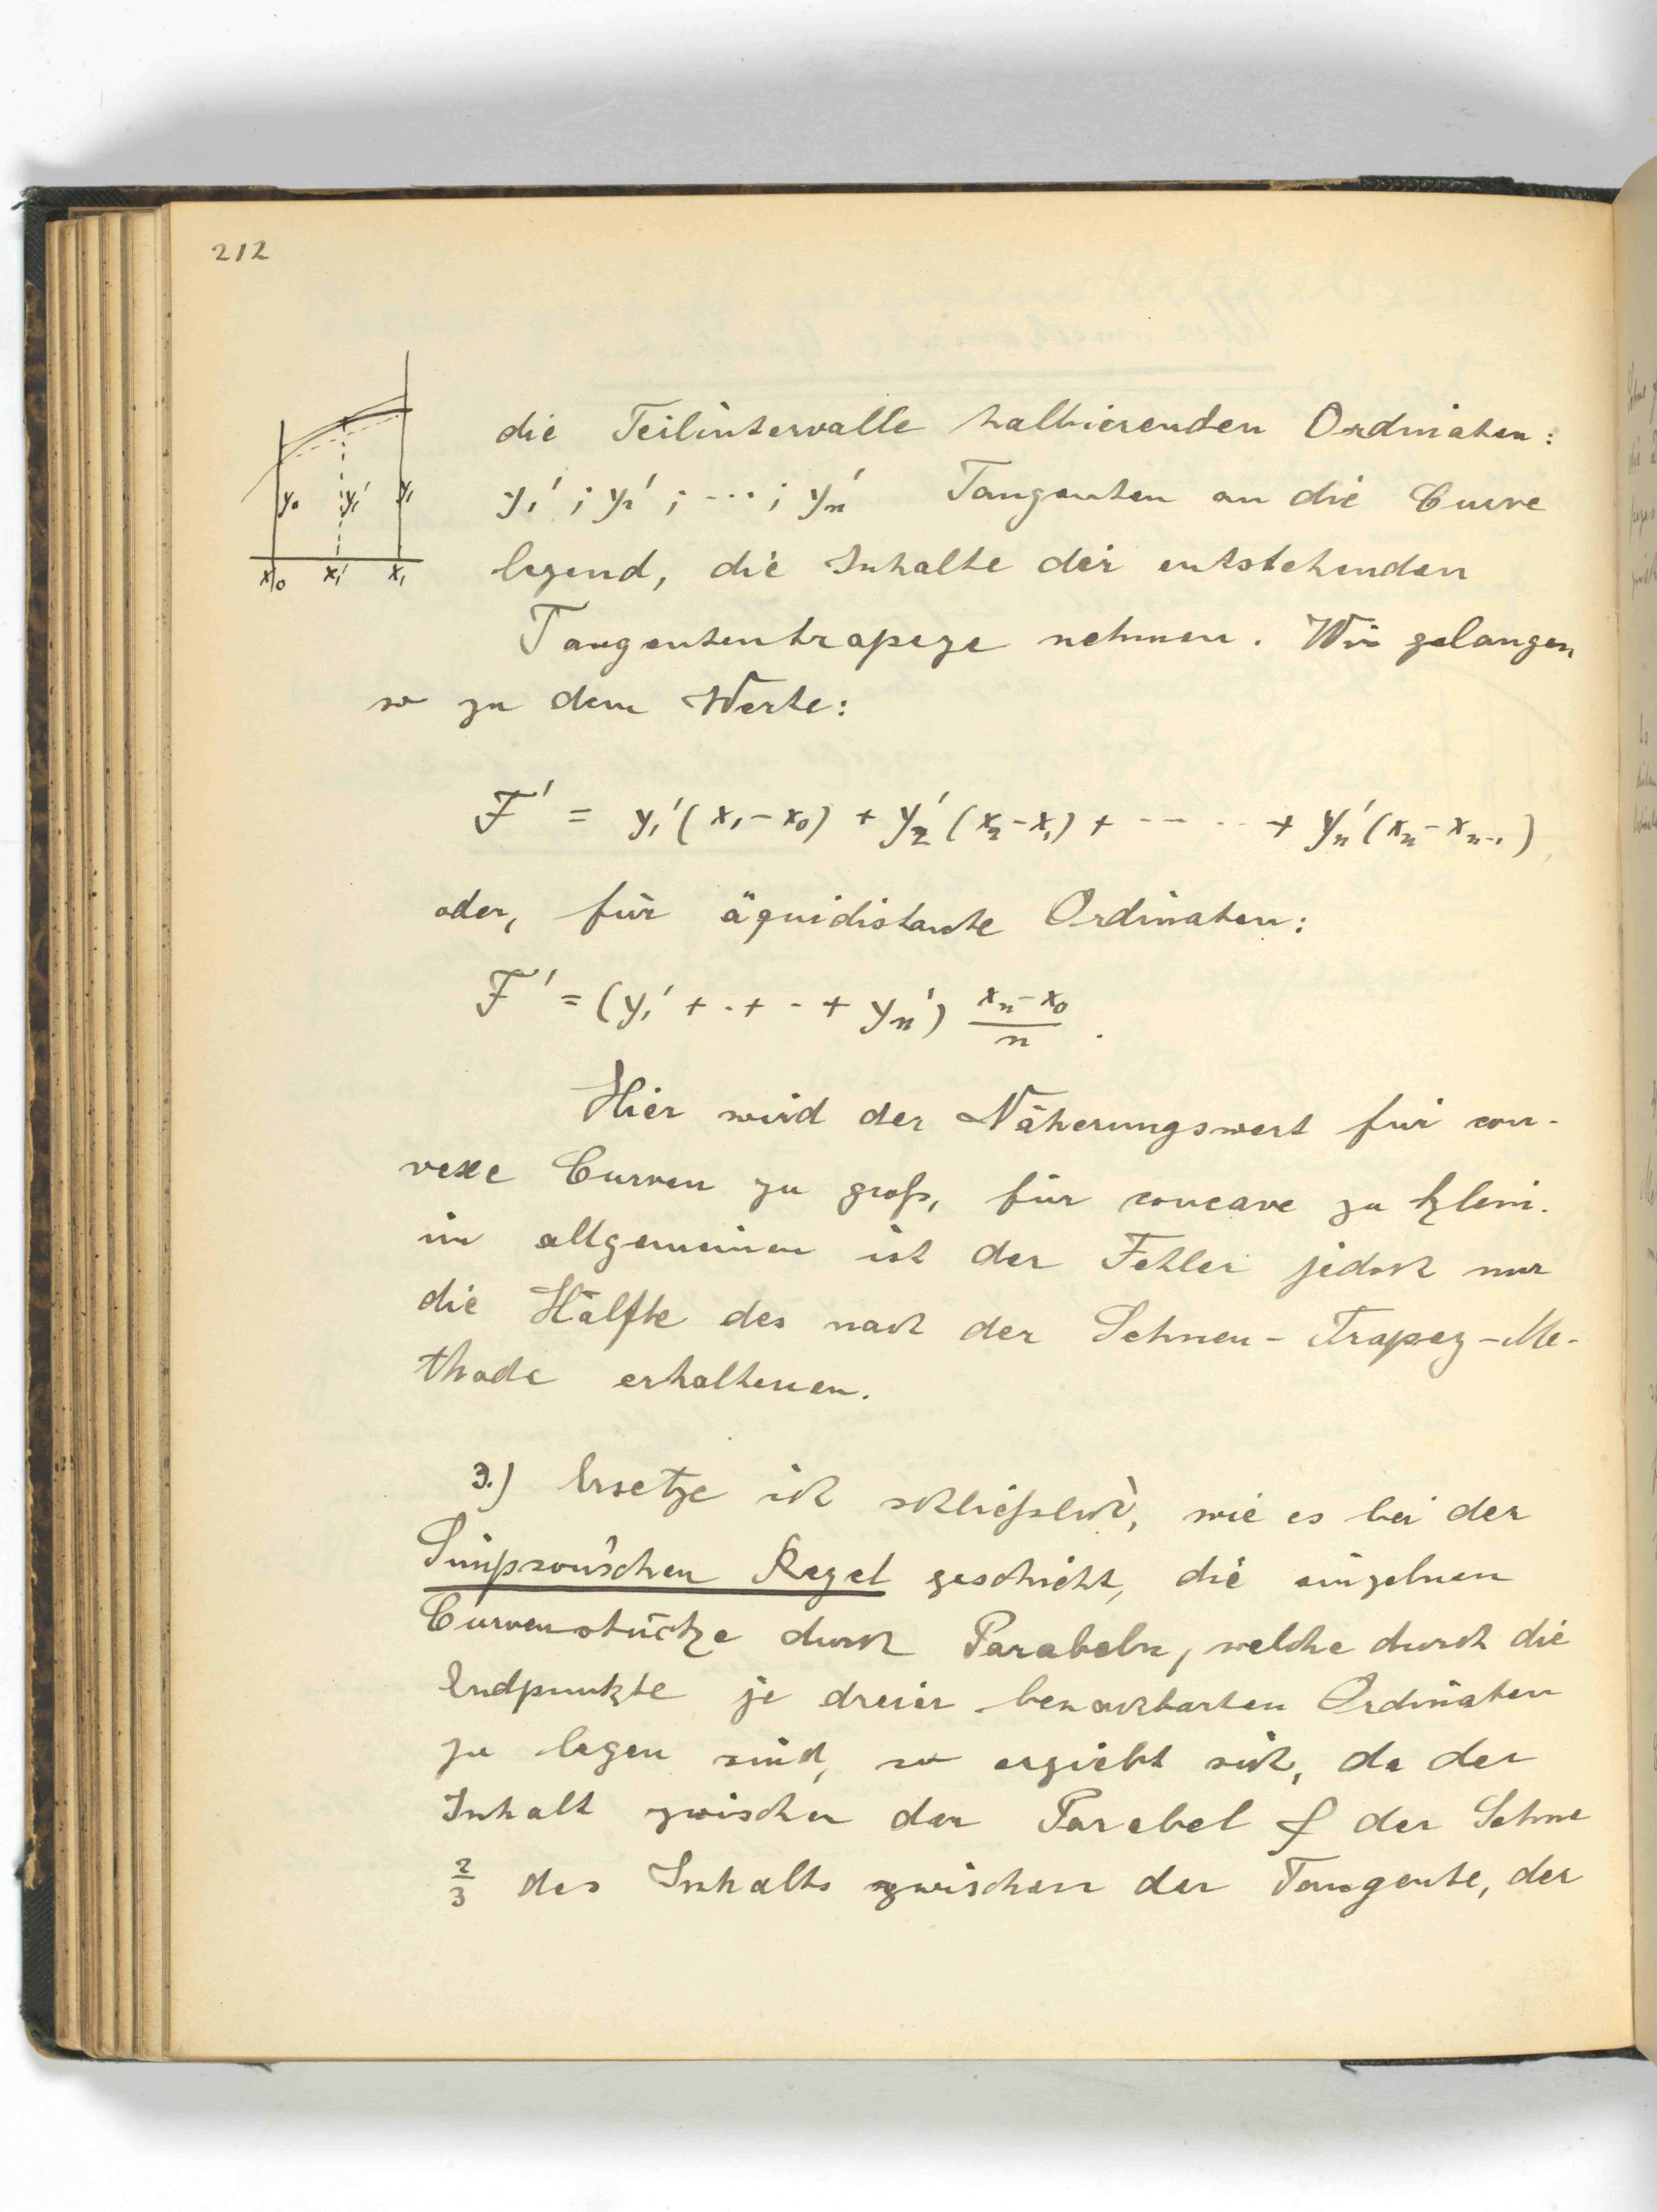 212
die Teilintervalle halbierenden Ordinaten:
y₁' ; y₂' ; ... ; yₙ' Tangenten an die Curve
legend, die Inhalte der entstehenden
Tangententrapeze nehmen. Wir gelangen
so zu dem Werte:
y₀ y₁' y₁
x₀ x₁' x₁
F' = y₁'(x₁-x₀) + y₂'(x₂-x₁) + ---- + yₙ'(xₙ-xₙ₋₁),
oder, für äquidistante Ordinaten:
F' = (y₁' + . + . + yₙ') (xₙ-x₀)/n .
Hier wird der Näherungswert für con-
vexe Curven zu groß, für concave zu klein.
im allgemeinen ist der Fehler jedoch nur
die Hälfte des nach der Sehnen-Trapez-Me-
thode erhaltenen.
3.) Ersetze ich schließlich, wie es bei der
Simpson'schen Regel geschieht, die einzelnen
Curvenstücke durch Parabeln, welche durch die
Endpunkte je dreier benachbarten Ordinaten
zu legen sind, so ergiebt sich, da der
Inhalt zwischen der Parabel & der Sehne
2/3 des Inhalts zwischen der Tangente, der